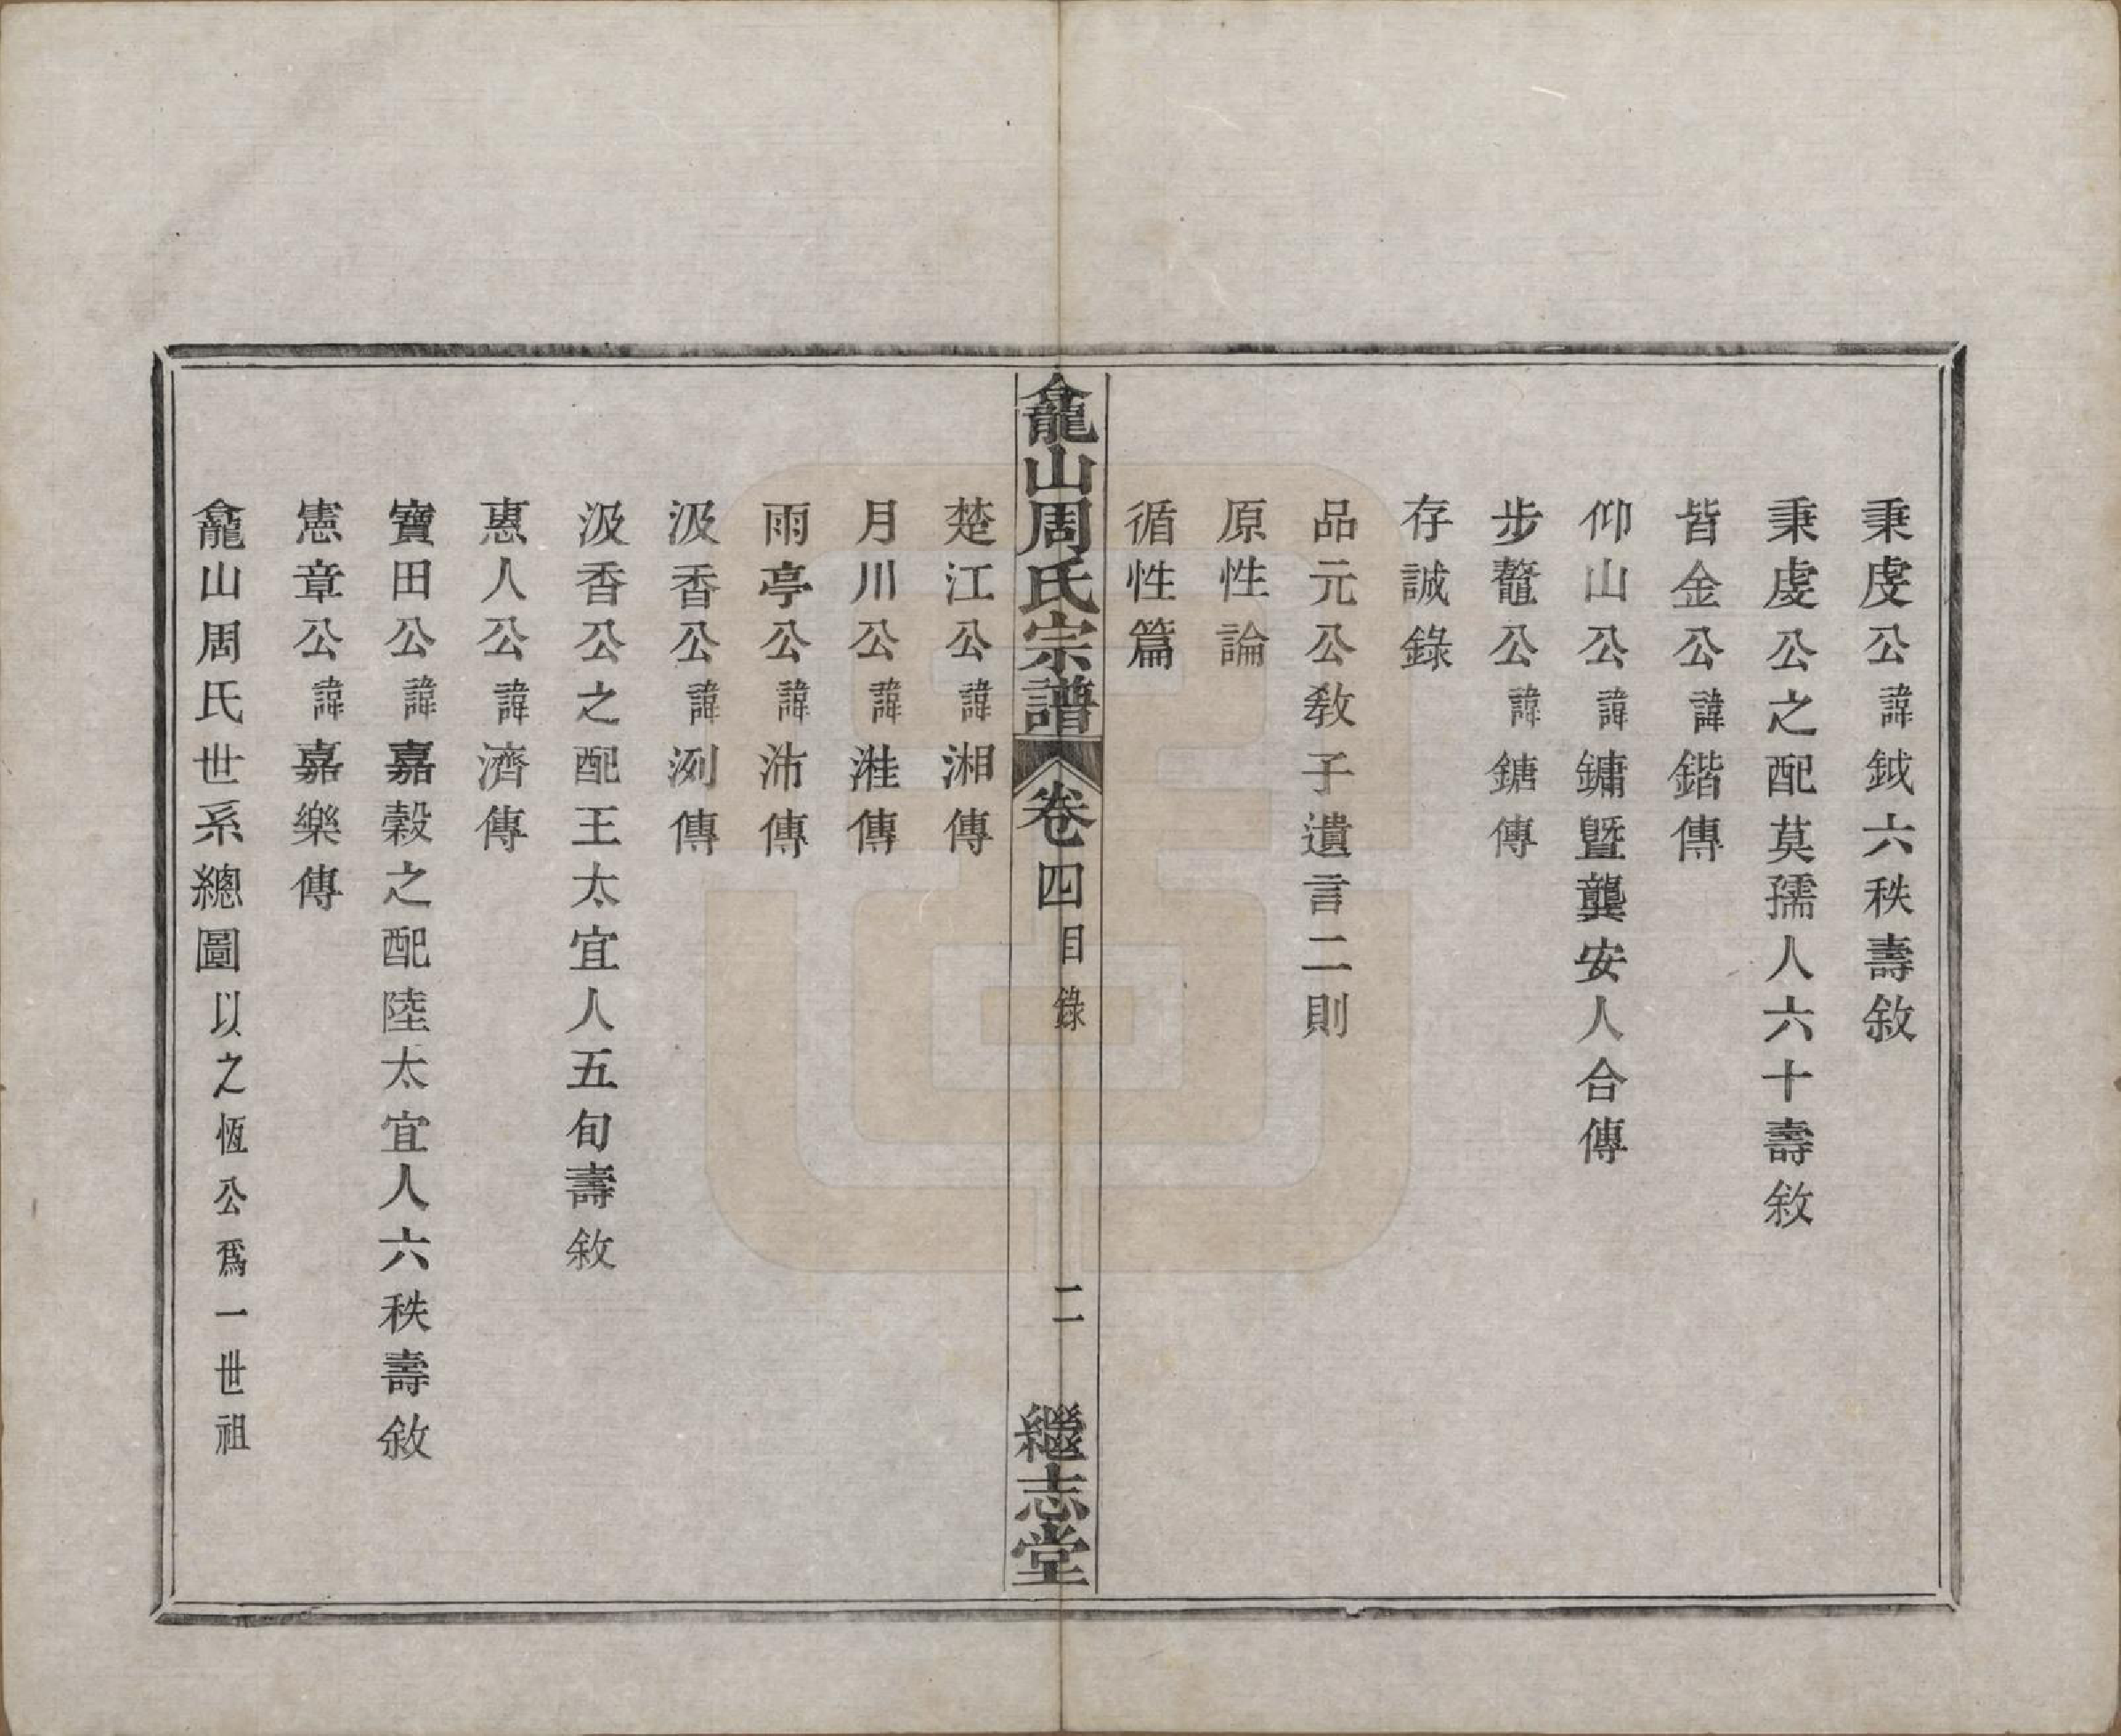 秉虔公諱鉞六秩壽敘
秉虔公之配莫孺人六十壽敘
皆金公諱鍇傳
仰山公諱鏞暨龔安人合傳
步鼇公諱鎕傳
存誠錄
品元公教子遺言二則
原性論
循性篇
龕山周氏宗譜 卷四 目錄 二 繼志堂
楚江公諱湘傳
月川公諱溎傳
雨亭公諱沛傳
汲香公諱洌傳
汲香公之配王太宜人五旬壽敘
惠人公諱濟傳
寶田公諱嘉穀之配陸太宜人六秩壽敘
憲章公諱嘉樂傳
龕山周氏世系總圖以之恆公爲一世祖